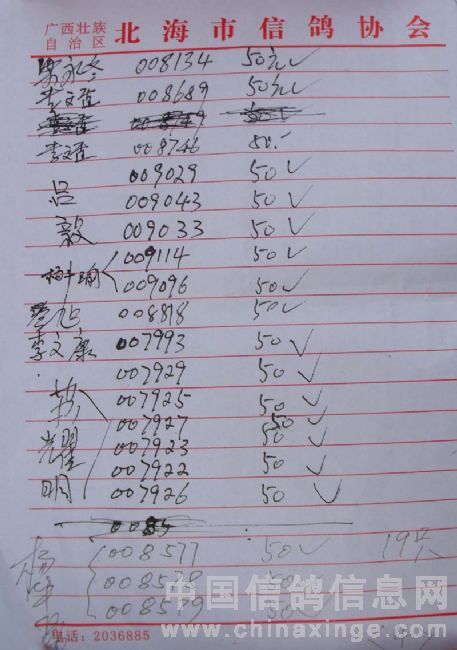 广西壮族
自治区 北海市信鸽协会
008134 50元✓
李文旺 008689 50元✓
李文旺 008746 50.-
009029 50✓
吕 009043 50✓
毅 009033 50✓
009114 50✓
009096 50✓
008818 50✓
李文康 007993 50✓
007929 50✓
007925 50✓
007927 50✓
耀 007923 50✓
007922 50✓
明 007926 50✓
0085
008577 50✓ 19只
杨 008578 50✓
008579 50✓
电话：2036885
中国信鸽信息网
www.chinaxinge.com